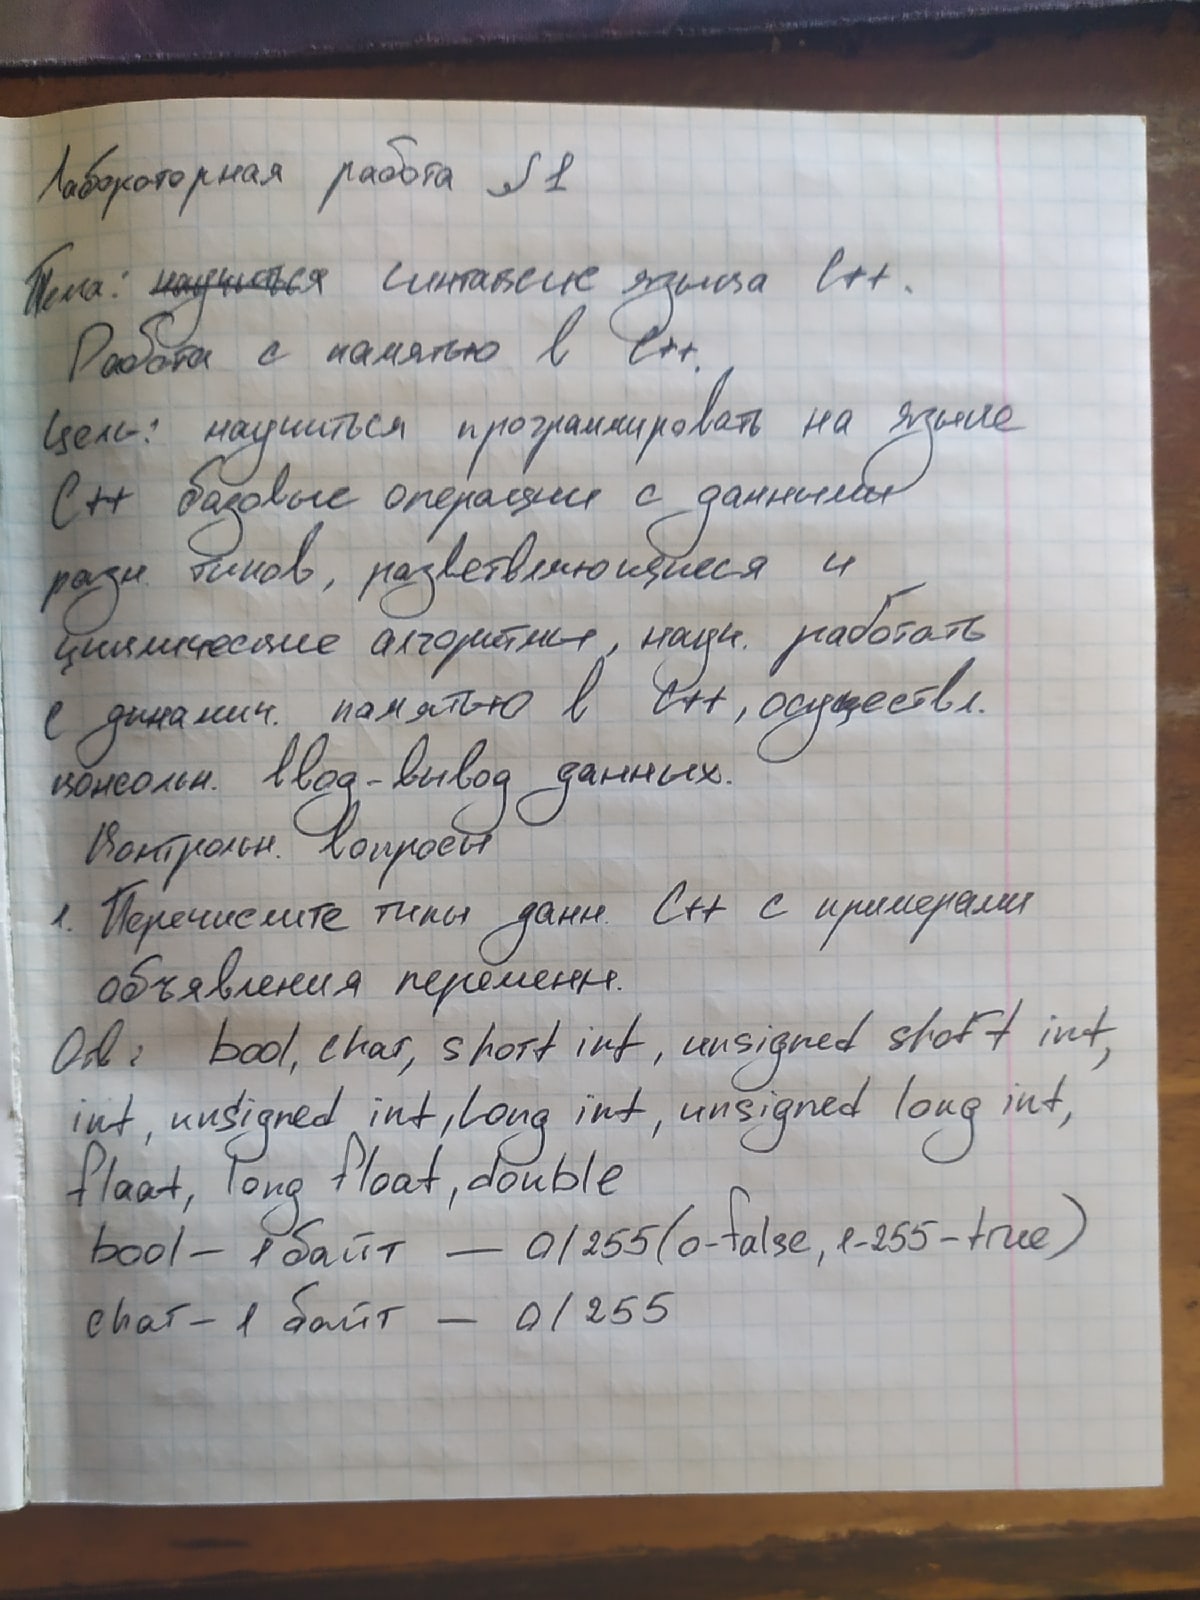 Лабороторная работа №1
Тема: научиться синтаксис языка C++.
Работа с памятью в C++.
Цель: научиться программировать на языке
C++ базовые операции с данными
разн. типов, разветвляющиеся и
циклические алгоритмы, науч. работать
с динамич. памятью в C++, осуществл.
консольн. ввод-вывод данных.
Контрольн. вопросы
1. Перечислите типы данн. C++ с примерами
объявления переменн.
Отв: bool, char, short int, unsigned short int,
int, unsigned int, long int, unsigned long int,
float, long float, double
bool - 1 байт — 0/255 (0-false, 1-255-true)
char - 1 байт — 0/255